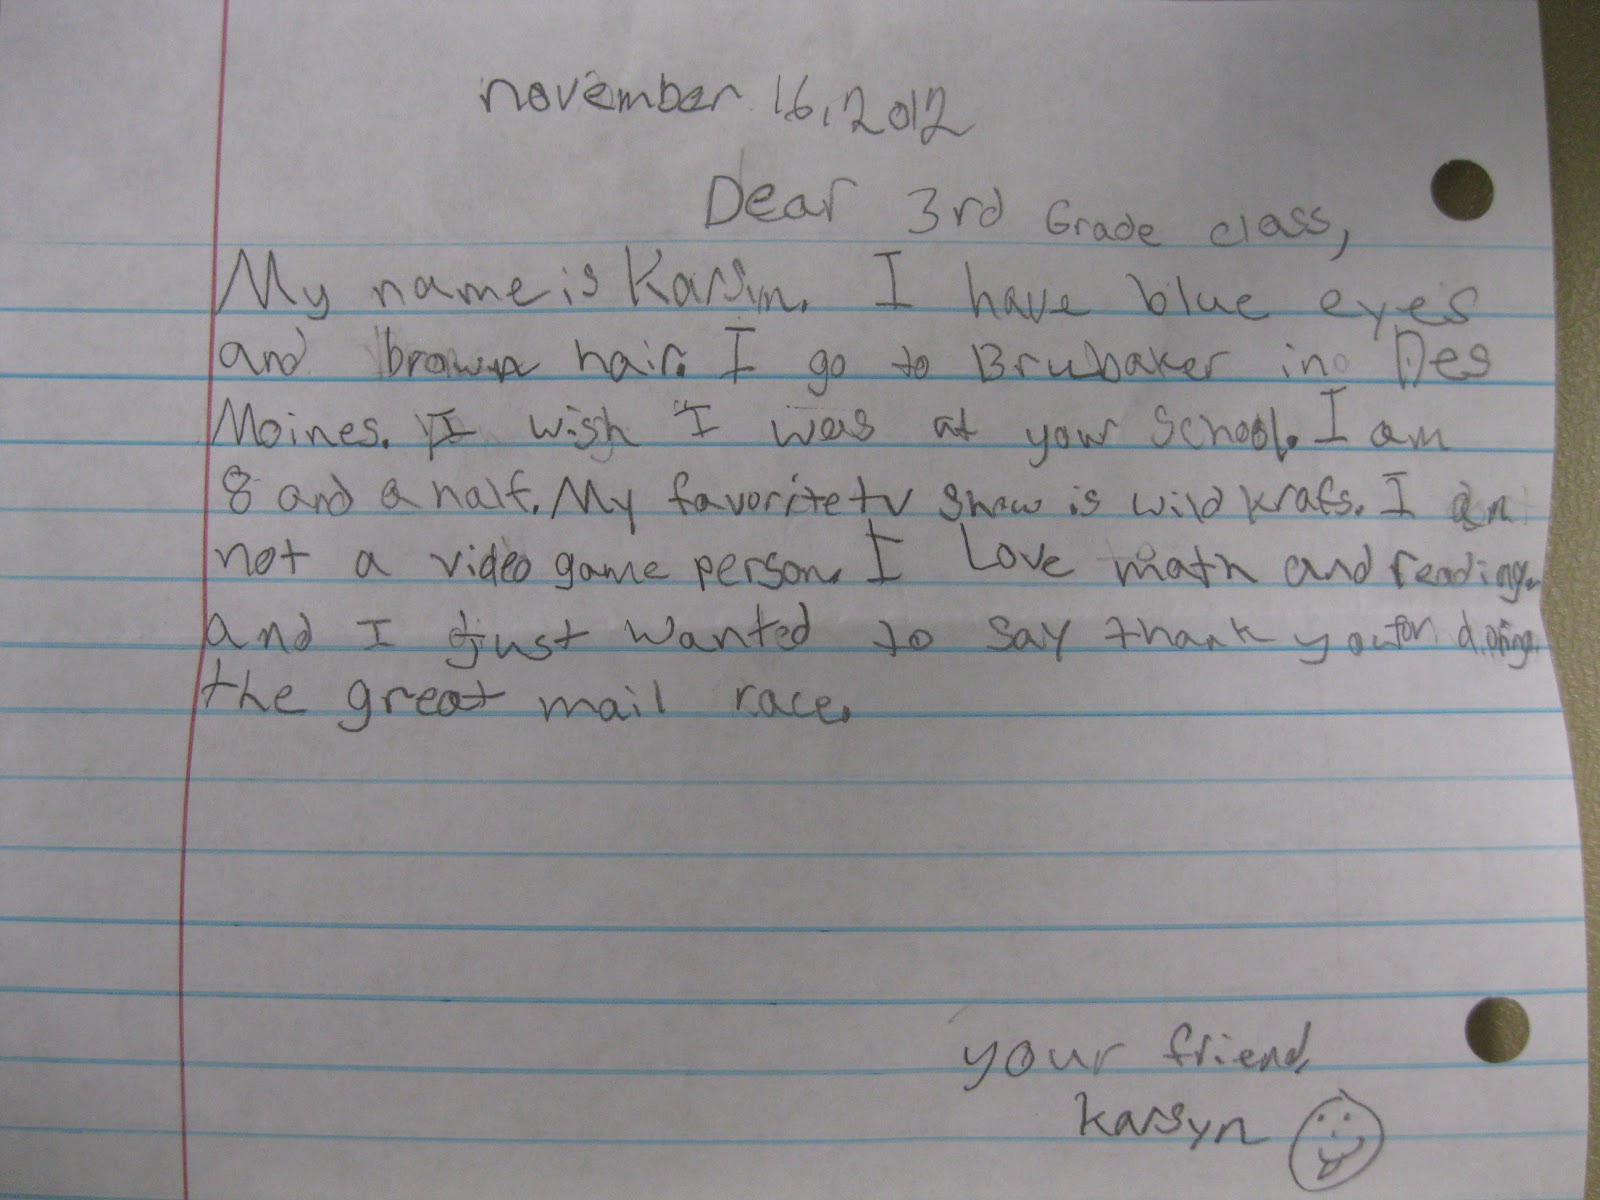 november 16, 2012
Dear 3rd Grade class,
My name is Karsyn. I have blue eyes
and brown hair. I go to Brubaker in Des
Moines. I wish I was at your school. I am
8 and a half. My favorite tv show is wild krats. I am
not a video game person. I Love math and reading.
and I just wanted to say thank you for doing
the great mail race.
your friend,
karsyn